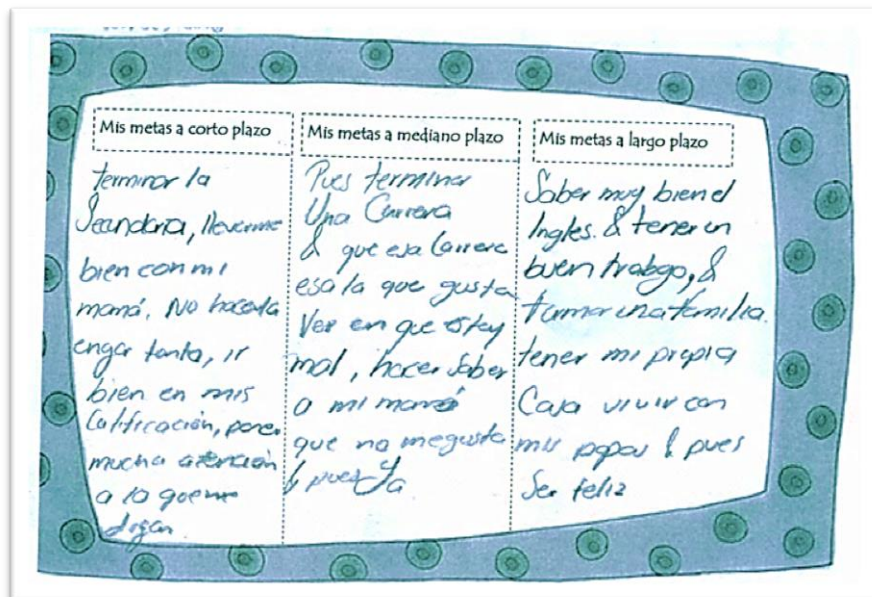 Mis metas a corto plazo
terminar la
Secundaria, llevarme
bien con mi
mamá. No hacerla
engar tanto, ir
bien en mis
Calificación, poner
mucha atención
a lo que me
digan.
Mis metas a mediano plazo
Pues terminar
Una Carrera
& que esa Carrera
esa la que gusta
Ver en que estoy
mal, hacer saber
a mi mamá
que no me gusta
& pues Ya
Mis metas a largo plazo
Saber muy bien el
Ingles. & tener un
buen trabajo, &
formar una familia.
tener mi propia
Casa vivir con
mis papas & pues
Ser feliz